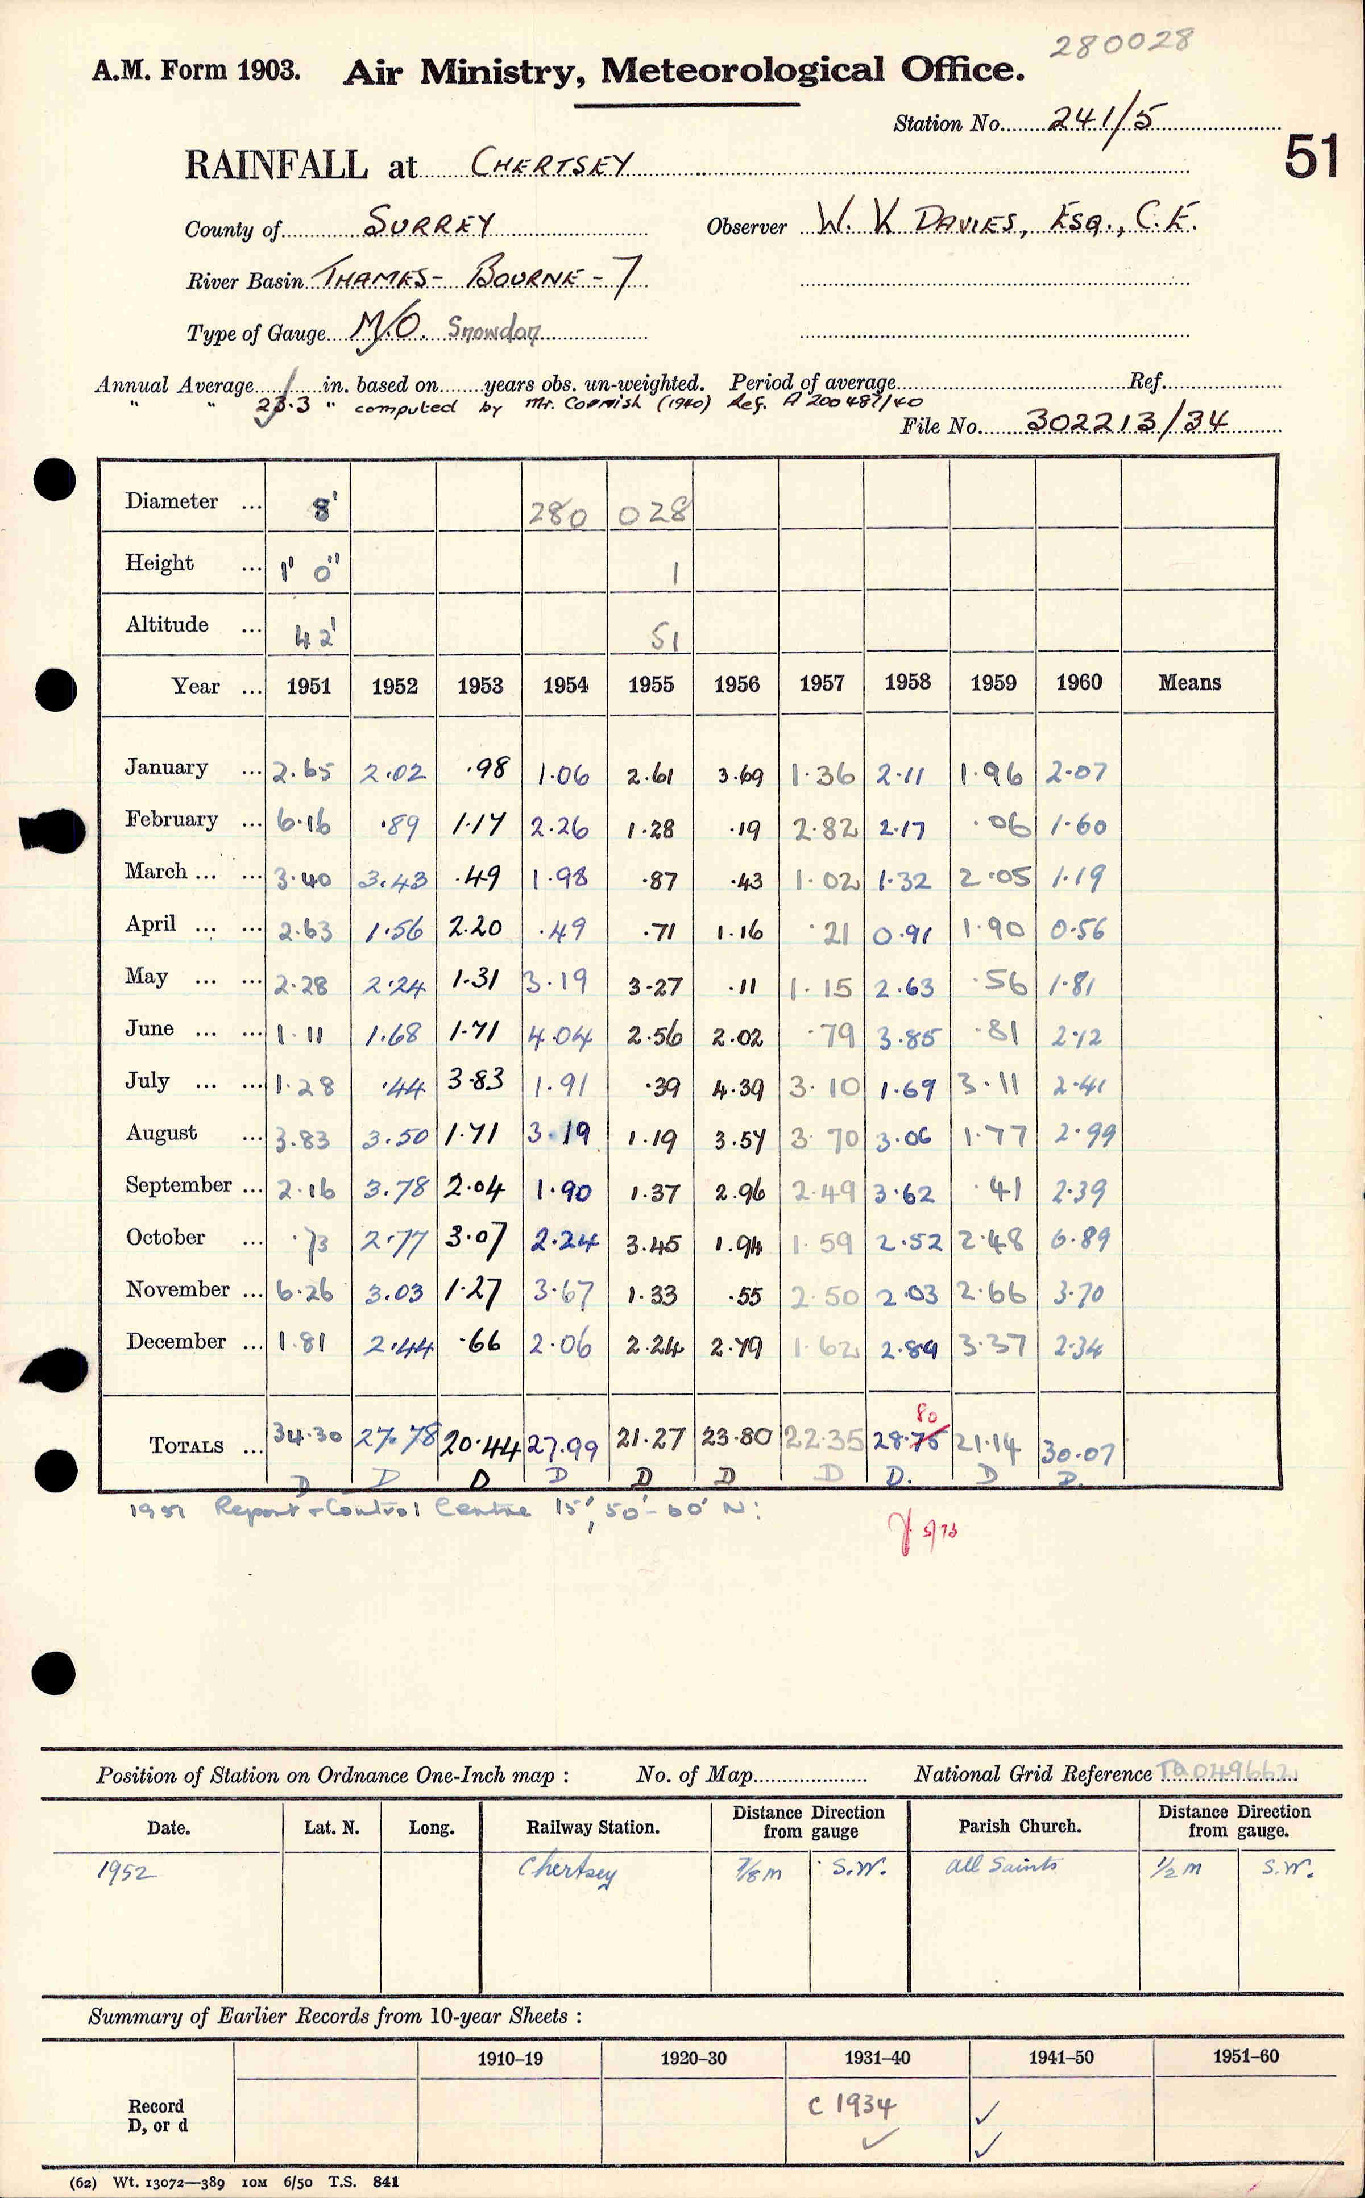 280028
A.M. Form 1903. Air Ministry, Meteorological Office.
Station No. 241/5
51
RAINFALL at CHERTSEY
County of SURREY Observer W. K DAVIES, ESQ., C.E.
River Basin THAMES - BOURNE - 7
Type of Gauge M/O. Snowdon
Annual Average / in. based on years obs. un-weighted. Period of average Ref.
" " 23.3 " computed by Mr. Cornish (1940) Ref. A 200487/40
File No. 302213/34
Diameter ... 8' 280 028
Height ... 1' 0" 1
Altitude ... 42' 51
Year ... 1951 1952 1953 1954 1955 1956 1957 1958 1959 1960 Means
January ... 2.65 2.02 .98 1.06 2.61 3.69 1.36 2.11 1.96 2.07
February ... 6.16 .89 1.17 2.26 1.28 .19 2.82 2.17 .06 1.60
March ... ... 3.40 3.43 .49 1.98 .87 .43 1.02 1.32 2.05 1.19
April ... ... 2.63 1.56 2.20 .49 .71 1.16 .21 0.91 1.90 0.56
May ... ... 2.28 2.24 1.31 3.19 3.27 .11 1.15 2.63 .56 1.81
June ... ... 1.11 1.68 1.71 4.04 2.56 2.02 .79 3.85 .81 2.12
July ... ... 1.28 .44 3.83 1.91 .39 4.39 3.10 1.69 3.11 2.41
August ... 3.83 3.50 1.71 3.19 1.19 3.57 3.70 3.06 1.77 2.99
September ... 2.16 3.78 2.04 1.90 1.37 2.96 2.49 3.62 .41 2.39
October ... .73 2.77 3.07 2.24 3.45 1.94 1.59 2.52 2.48 6.89
November ... 6.26 3.03 1.27 3.67 1.33 .55 2.50 2.03 2.66 3.70
December ... 1.81 2.44 .66 2.06 2.24 2.79 1.62 2.89 3.37 2.34
80
TOTALS ... 34.30 27.78 20.44 27.99 21.27 23.80 22.35 28.75 21.14 30.07
D D D D D D D D. D D.
1951 Report + Control Centre 15', 50'-60' N:
5/73
Position of Station on Ordnance One-Inch map : No. of Map National Grid Reference TQ 049662
Date. Lat. N. Long. Railway Station. Distance Direction from gauge Parish Church. Distance Direction from gauge.
1952 Chertsey 7/8 m S.W. All Saints 1/2 m S.W.
Summary of Earlier Records from 10-year Sheets :
1910-19 1920-30 1931-40 1941-50 1951-60
Record C 1934 ✓
D, or d ✓ ✓
(62) Wt. 13072—389 10M 6/50 T.S. 841